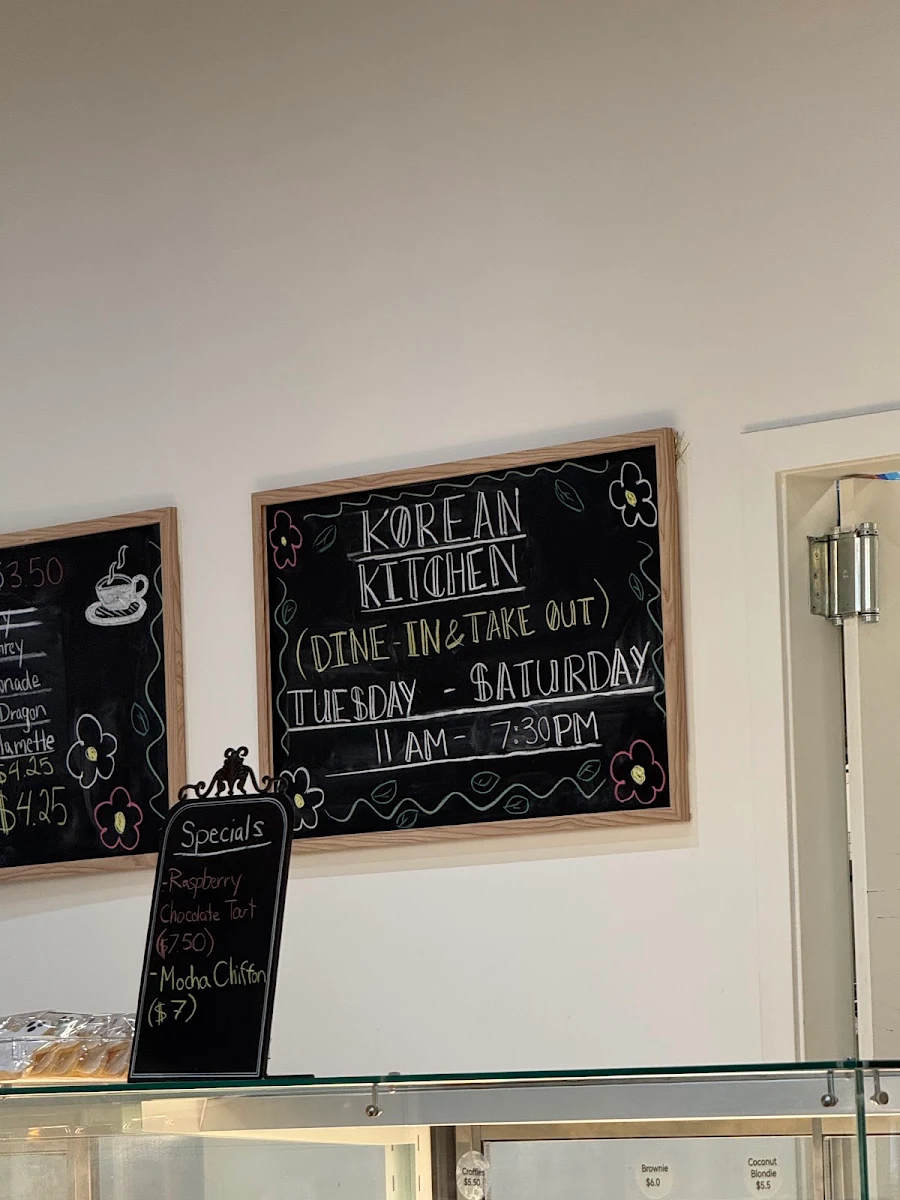 $3.50
Dragon
$4.25
$4.25
KOREAN
KITCHEN
(DINE-IN & TAKE OUT)
TUESDAY - SATURDAY
11 AM - 7:30PM
Specials
-Raspberry
Chocolate Tart
($7.50)
-Mocha Chiffon
($7)
Croffles
$5.50
Brownie
$6.0
Coconut
Blondie
$5.5